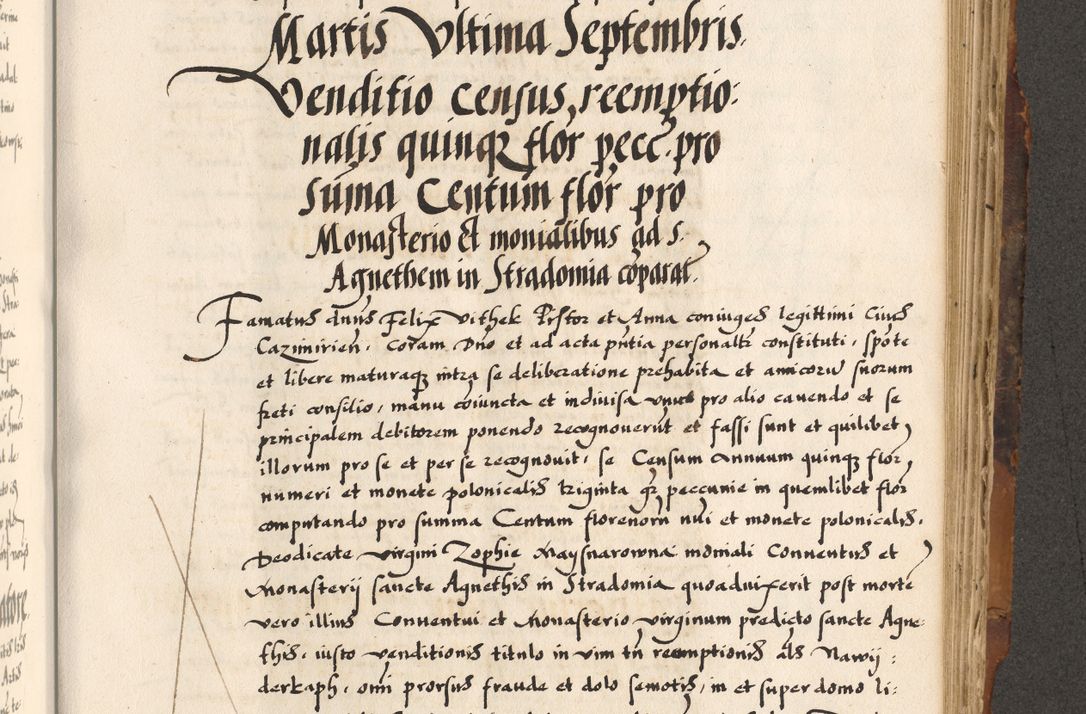 Martis Vltima Septembris.
Venditio Census, reemptio:
nalis quinqz flor pecc. pro
suma Centum flor pro
Monasterio Et monialibus ad s.
Agnethem in Stradomia coparat.
Famatus dnus Felix Vithek Pistor et Anna coniuges legittimi Ciues
Cazimirien. Coram Dno et ad acta pntia personaltr constituti, spote
et libere maturaqz intra se deliberatione prehabita et amicoru suorum
freti consilio, manu coiuncta et indiuisa vnus pro alio cauendo et se
principalem debitorem ponendo recognouerut et fassi sunt et quilibet
illorum pro se et per se recognouit, se Censum Annuum quinqz flor
numeri et monete polonicalis triginta gr peccunie in quemlibet flor
computando pro summa Centum florenoru nui et monete polonicalis.
Deodicate virgini Zophie Maysnarowna moniali Conuentus et
Monasterij sancte Agnethis in Stradomia quoaduixerit post morte
vero illius Conuentui et Monasterio virginum predicto sancte Agne:
this. iusto venditionis titulo in vim tn reemptionis als Nawij:
derkaph, omi prorsus fraude et dolo semotis, in et super domo li: